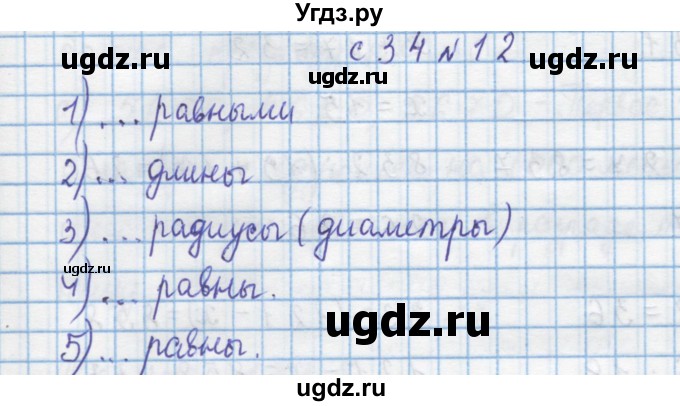 Угдз.ру
с 34 № 12
ugdz.ru ugdz.ru ugdz.ru
1) ... равными
2) ... длины
ugdz.ru ugdz.ru
3) ... радиусы (диаметры)
ugdz.ru
4) ... равны.
ugdz.ru ugdz.ru
5) ... равны.
ugdz.ru